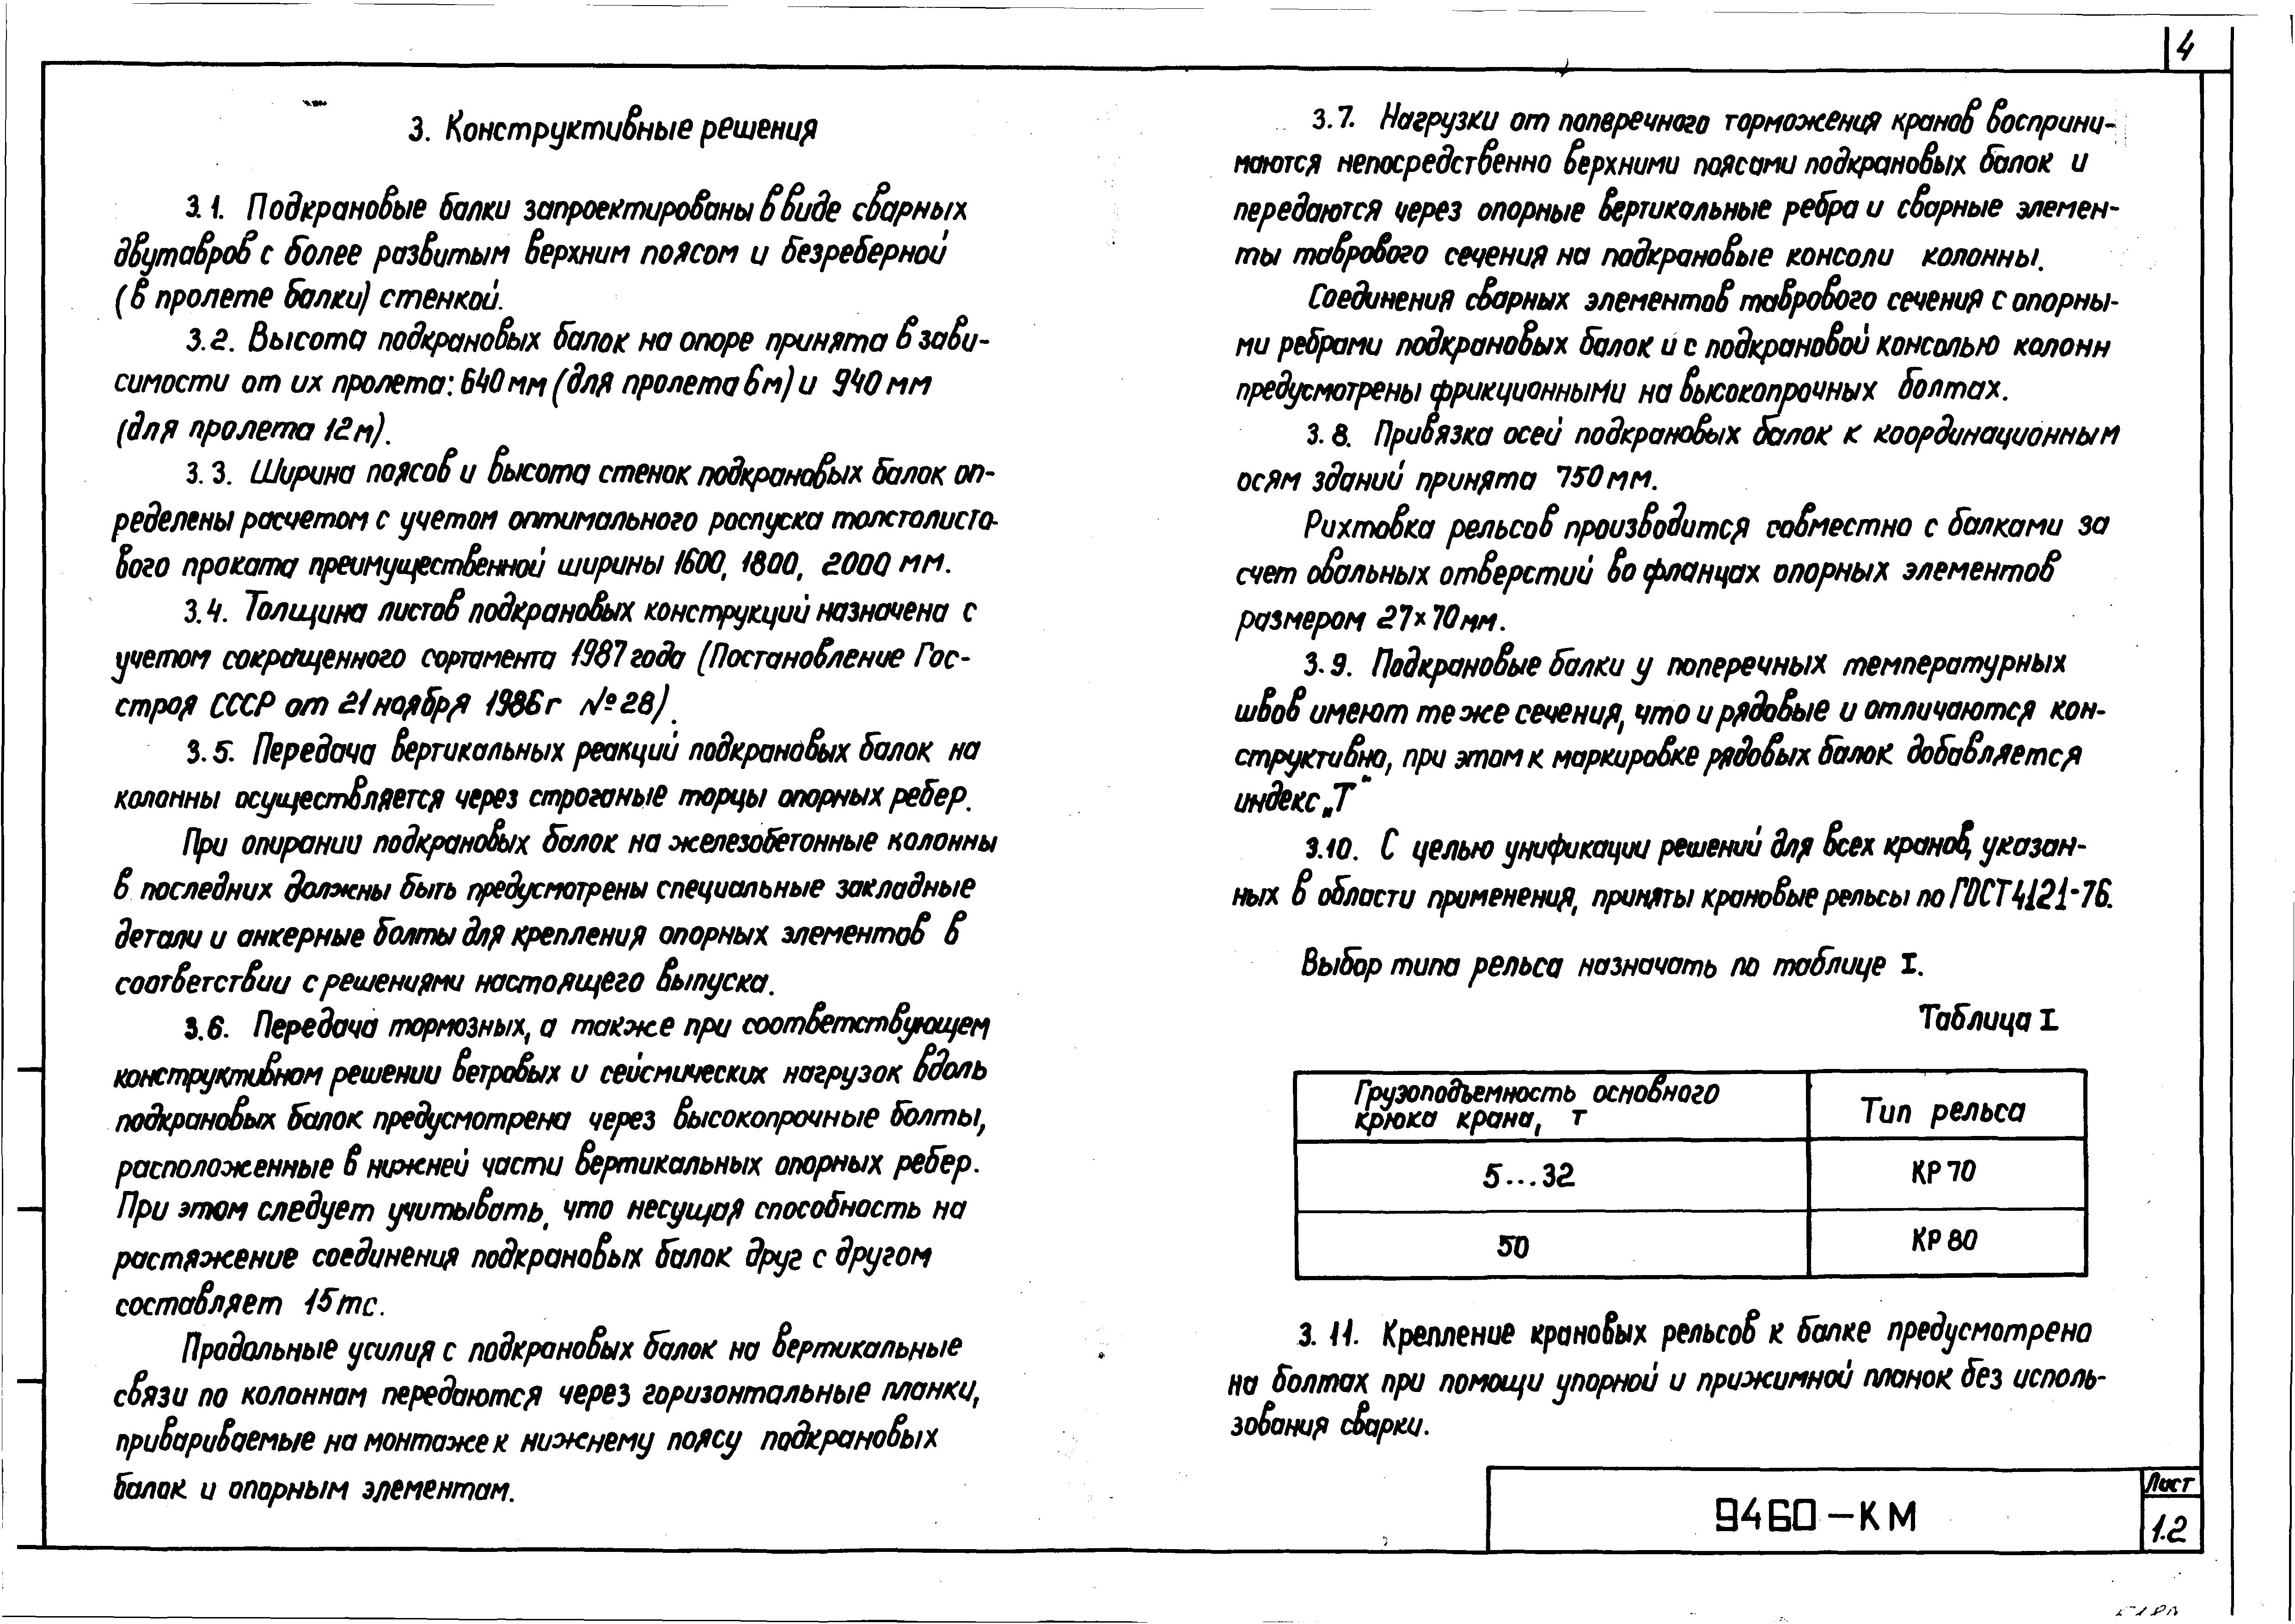 4
3. Конструктивные решения
3.1. Подкрановые балки запроектированы в виде сварных
двутавров с более развитым верхним поясом и безреберной
(в пролете балки) стенкой.
3.2. Высота подкрановых балок на опоре принята в зави-
симости от их пролета: 640 мм (для пролета 6 м) и 940 мм
(для пролета 12 м).
3.3. Ширина поясов и высота стенок подкрановых балок оп-
ределены расчетом с учетом оптимального роспуска толстолисто-
вого проката преимущественной ширины 1600, 1800, 2000 мм.
3.4. Толщина листов подкрановых конструкций назначена с
учетом сокращенного сортамента 1987 года (Постановление Гос-
строя СССР от 21 ноября 1986 г №28).
3.5. Передача вертикальных реакций подкрановых балок на
колонны осуществляется через строганые торцы опорных ребер.
При опирании подкрановых балок на железобетонные колонны
в последних должны быть предусмотрены специальные закладные
детали и анкерные болты для крепления опорных элементов в
соответствии с решениями настоящего выпуска.
3.6. Передача тормозных, а также при соответствующем
конструктивном решении ветровых и сейсмических нагрузок вдоль
подкрановых балок предусмотрена через высокопрочные болты,
расположенные в нижней части вертикальных опорных ребер.
При этом следует учитывать, что несущая способность на
растяжение соединения подкрановых балок друг с другом
составляет 15 тс.
Продольные усилия с подкрановых балок на вертикальные
связи по колоннам передаются через горизонтальные планки,
привариваемые на монтаже к нижнему поясу подкрановых
балок и опорным элементам.
3.7. Нагрузки от поперечного торможения кранов восприни-
маются непосредственно верхними поясами подкрановых балок и
передаются через опорные вертикальные ребра и сварные элемен-
ты таврового сечения на подкрановые консоли колонны.
Соединения сварных элементов таврового сечения с опорны-
ми ребрами подкрановых балок и с подкрановой консолью колонн
предусмотрены фрикционными на высокопрочных болтах.
3.8. Привязка осей подкрановых балок к координационным
осям зданий принята 750 мм.
Рихтовка рельсов производится совместно с балками за
счет овальных отверстий во фланцах опорных элементов
размером 27×70 мм.
3.9. Подкрановые балки у поперечных температурных
швов имеют те же сечения, что и рядовые и отличаются кон-
структивно, при этом к маркировке рядовых балок добавляется
индекс „Т“
3.10. С целью унификации решений для всех кранов, указан-
ных в области применения, приняты крановые рельсы по ГОСТ 4121-76.
Выбор типа рельса назначать по таблице I.
Таблица I
Грузоподъемность основного
крюка крана, т
Тип рельса
5...32
КР 70
50
КР 80
3.11. Крепление крановых рельсов к балке предусмотрено
на болтах при помощи упорной и прижимной планок без исполь-
зования сварки.
9460-КМ
Лист
1.2